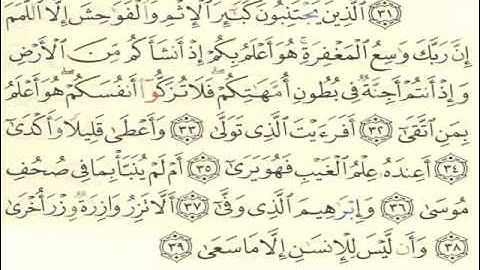 ﴿٣١﴾ الَّذِينَ يَجْتَنِبُونَ كَبَٰٓئِرَ الْإِثْمِ وَالْفَوَٰحِشَ إِلَّا اللَّمَمَ
إِنَّ رَبَّكَ وَٰسِعُ الْمَغْفِرَةِ هُوَ أَعْلَمُ بِكُمْ إِذْ أَنشَأَكُم مِّنَ الْأَرْضِ
وَإِذْ أَنتُمْ أَجِنَّةٌ فِى بُطُونِ أُمَّهَٰتِكُمْ فَلَا تُزَكُّوٓا۟ أَنفُسَكُمْ هُوَ أَعْلَمُ
بِمَنِ اتَّقَىٰٓ ﴿٣٢﴾ أَفَرَءَيْتَ الَّذِى تَوَلَّىٰ ﴿٣٣﴾ وَأَعْطَىٰ قَلِيلًا وَأَكْدَىٰٓ
﴿٣٤﴾ أَعِندَهُۥ عِلْمُ الْغَيْبِ فَهُوَ يَرَىٰٓ ﴿٣٥﴾ أَمْ لَمْ يُنَبَّأْ بِمَا فِى صُحُفِ
مُوسَىٰ ﴿٣٦﴾ وَإِبْرَٰهِيمَ الَّذِى وَفَّىٰٓ ﴿٣٧﴾ أَلَّا تَزِرُ وَازِرَةٌ وِزْرَ أُخْرَىٰ
﴿٣٨﴾ وَأَن لَّيْسَ لِلْإِنسَٰنِ إِلَّا مَا سَعَىٰ ﴿٣٩﴾